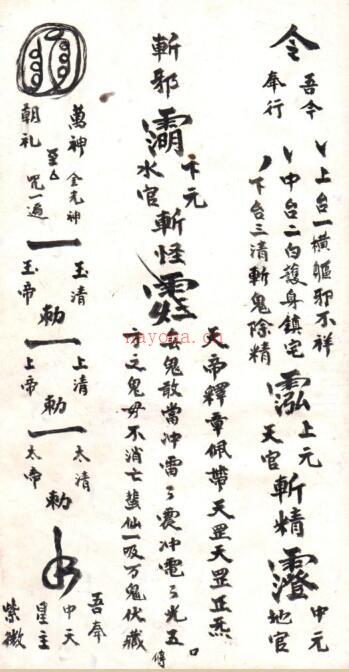 令
吾今
奉行
上台一横驅邪不祥
中台二白護身鎮宅
下台三清斬鬼除精
上元
天官
斬精
中元
地官
斬邪
卞元
水官
斬怪
天帝釋章佩帶天罡天罡正炁
么鬼敢當冲雷〻震冲電〻光五
之鬼毋不消亡蛮仙一吸万鬼伏藏
萬神
朝礼
金光神
咒一遍
玉清
玉帝
勅
上清
上帝
勅
太清
太帝
勅
吾奉
中天
皇主
紫微
nayona.cn